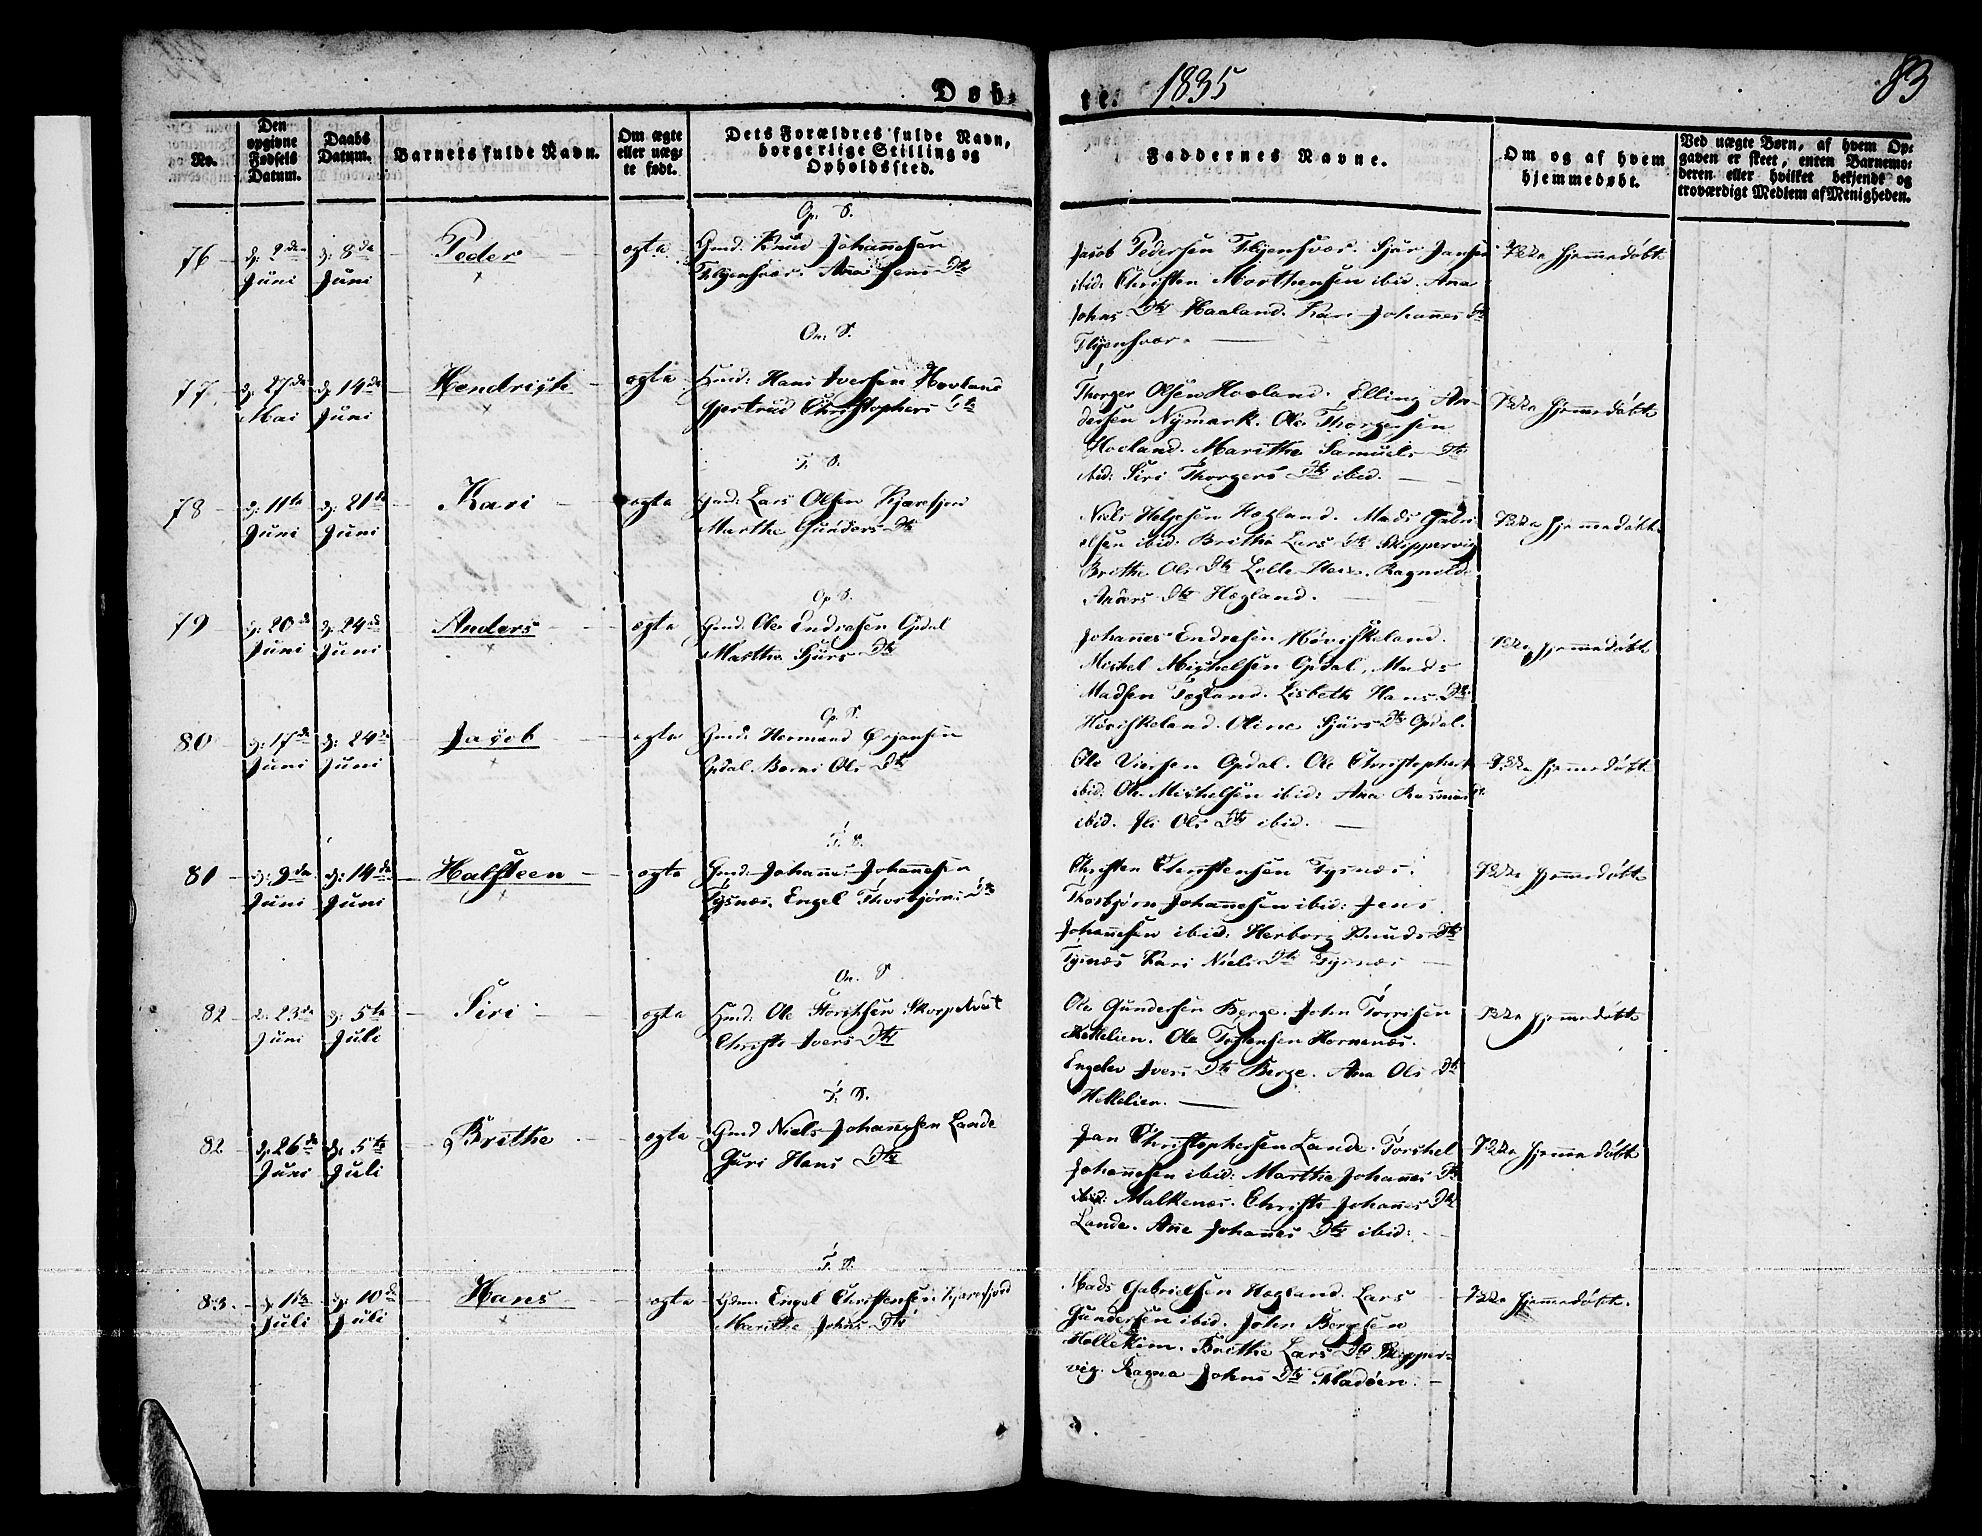 Døb-
te. 1835
83
No.
Den opgivne Fødsels Datum.
Daabs Datum.
Barnets fulde Navn.
Om ægte eller uæg-te født.
Dets Forældres fulde Navn, borgerlige Stilling og Opholdssted.
Faddernes Navne.
Om og af hvem hjemmedøbt.
Ved uægte Børn, af hvem Op-gaven er skeet, enten Barnemo-deren eller hvilket bekjendt og troværdigt Medlem af Menigheden.
Op. S.
76 d: 2den Juni d: 8de Juni Peder ægte Gmd: Knud Johannesen
Flygensvær. Ana Jens Dtr
Jacob Pedersen Flygensvær. Sjur Jansen
ibid: Christen Morthensen ibid. Ana
Johns Dtr Haaland. Kari Johannes Dtr
Flygensvær.
Ikke hjemmedøbt
On. S.
77. d: 27de Mai d: 14de Juni Hendrich ægte Hmd: Hans Iversen Hovland
Gjertrud Christophers Dtr
Thorger Olsen Hovland. Elling An-
dersen Nymark. Ole Thorgersen
Hovland. Marithe Samuels Dtr
ibid: Siri Thorgers Dtr ibid.
Ikke hjemmedøbt
T. S.
78 d: 11te Juni d: 21de Juni Kari ægte Gmd: Lars Olsen Kjærefjor
Marthe Gunders Dtr
Niels Heljesen Hegland. Mads Gabri-
elsen ibid. Brithe Lars Dtr Skippervig
Brithe Ols Dtr Lille Ragnild
Anders Dtr Hegland.
Ikke hjemmedøbt.
Op S.
79 d: 20de Juni d: 24de Juni Anders ægte Gmd. Ole Endresen Opdal
Marthe Sjurs Dtr
Johannes Endresen Høviskeland.
Michel Michelsen Opdal. Mads
Madsen Tegland. Lisbeth Hans Dtr
Høviskeland. Oline Sjurs Dtr Opdal.
Ikke hjemmedøbt
Op. S.
80 d: 17de Juni d: 24de Juni Jacob ægte Gmd: Hermand Ørjansen
Opdal. Ols Dtr
Ole Opdal. Ole Christophers
ibid: Ole Michelsen ibid: Ana Rasmus Dtr
ibid. Ols Dtr ibid.
Ikke hjemmedøbt
T. S.
81 d: 9de Juni d: 14de Juni Halsteen ægte Gmd. Johannes Johannesen
Tysnæs. Engel Thorbjørns Dtr
Christen Christensen Tysnæs.
Thorbjørn Johannesen ibid: Jens
Johannesen ibid: Herborg Knuds Dtr
Tysnæs Kari Niels Dtr Tysnæs
Ikke hjemmedøbt
On. S
82 d: 23de Juni d: 5te Juli Siri ægte Hmd: Ole
Christi Ivers Dtr
Ole Gundersen Berge. John Torrisen
Hettelien. Ole Hornenæs.
Engelev Ivers Dtr Berge. Ana Ols Dtr
Hettelien.
Ikke hjemmedøbt
T. S.
82 d: 26de Juni d: 5te Juli Brithe ægte Gmd Niels Johannesen Lande
Guri Hans Dtr
Jan Christophersen Lande. Torchel
Johannesen ibid: Marthe Johannes Dtr
Malkenæs. Christi Johannes Dtr
Lande. Ane Johannes Dtr ibid:
Ikke hjemmedøbt
T. S.
83. d: 1ste Juli d: 10de Juli Hans ægte Engel Christensen Kjærefjord
Marithe Johns Dtr
Mads Gabrielsen Hegland. Lars
Gundersen ibid. John Børgesen
Hollekim. Brithe Lars Dtr Skipper-
vig. Ragna Johns Dtr Fladøen.
Ikke hjemmedøbt.